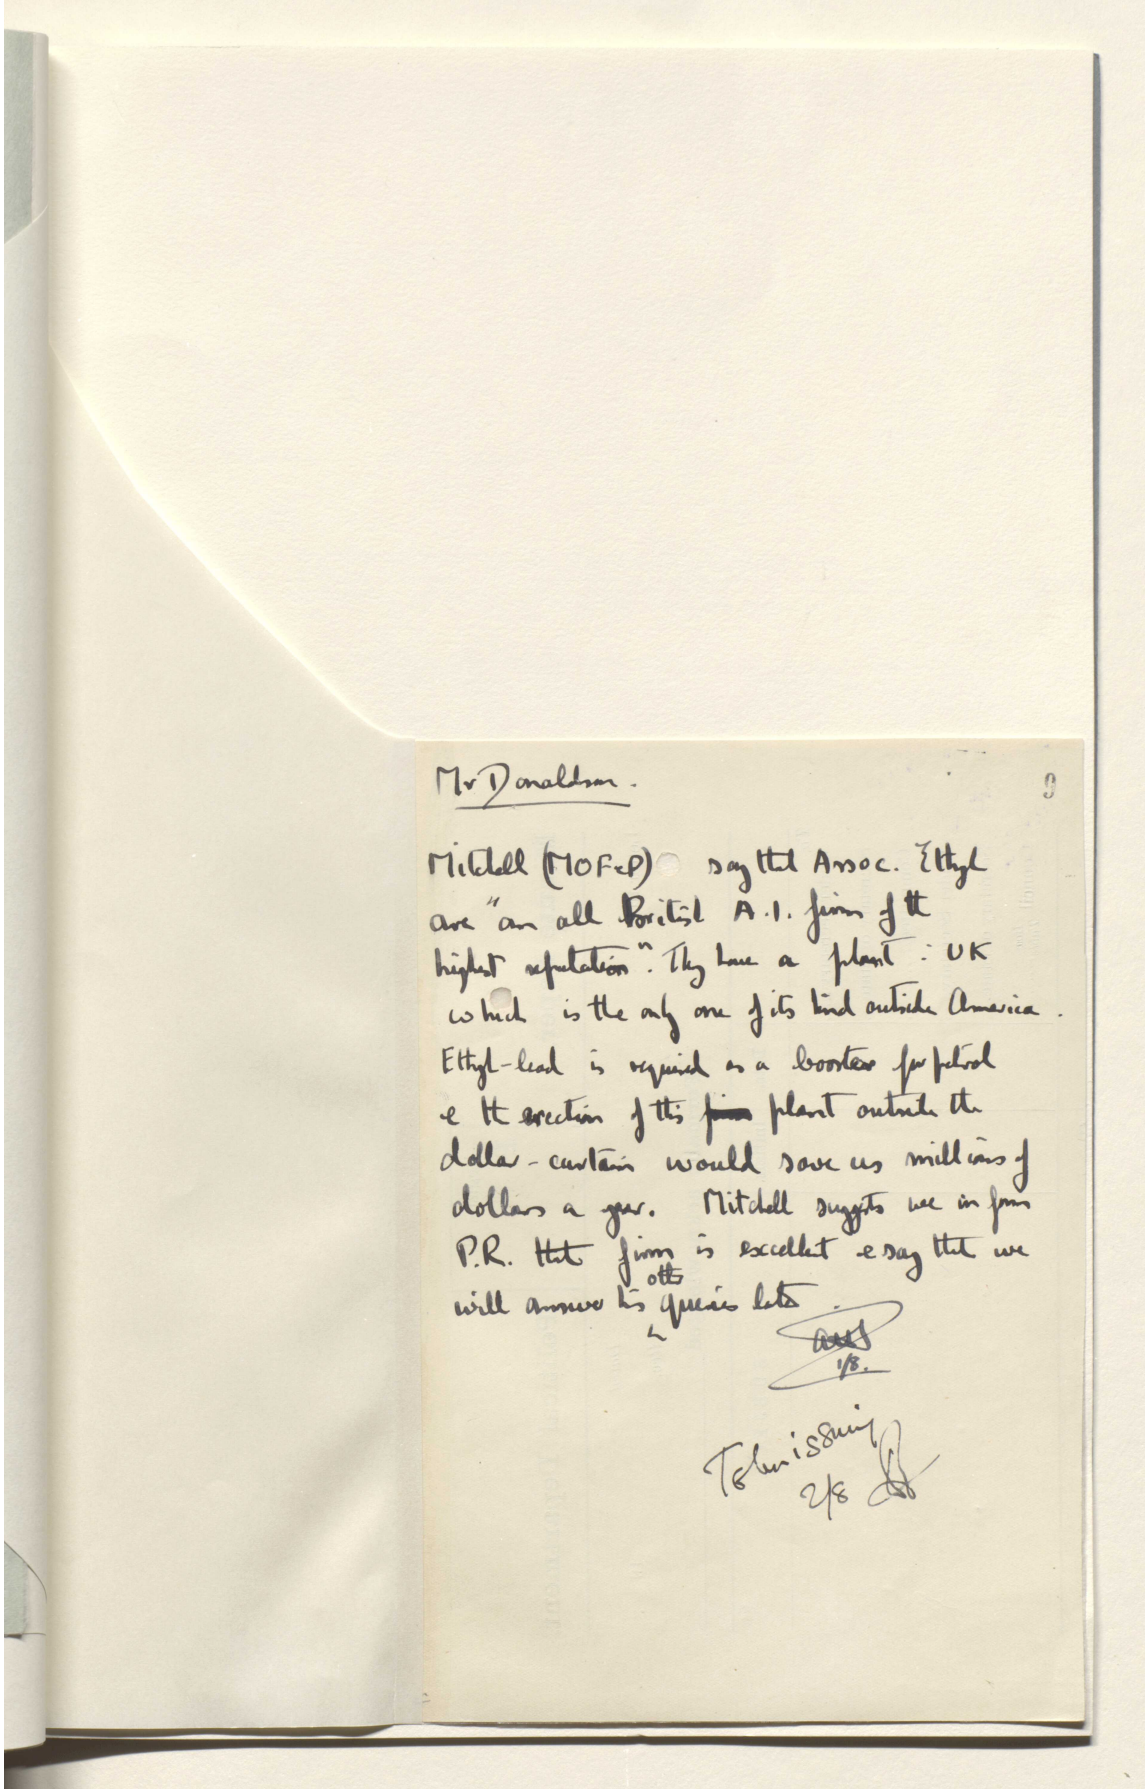 Mr Donaldson.
9
Mitchell (MOF&P) say that Assoc. Ethyl
are "an all British A.1. firm of the
highest reputation". They have a plant in UK
which is the only one of its kind outside America.
Ethyl-lead is required as a booster for petrol
& the erection of this firm plant outside the
dollar-curtain would save us millions of
dollars a year. Mitchell suggests we inform
P.R. that firm is excellent & say that we
other
will answer his queries later.
1/8.
Telm issuing
2/8